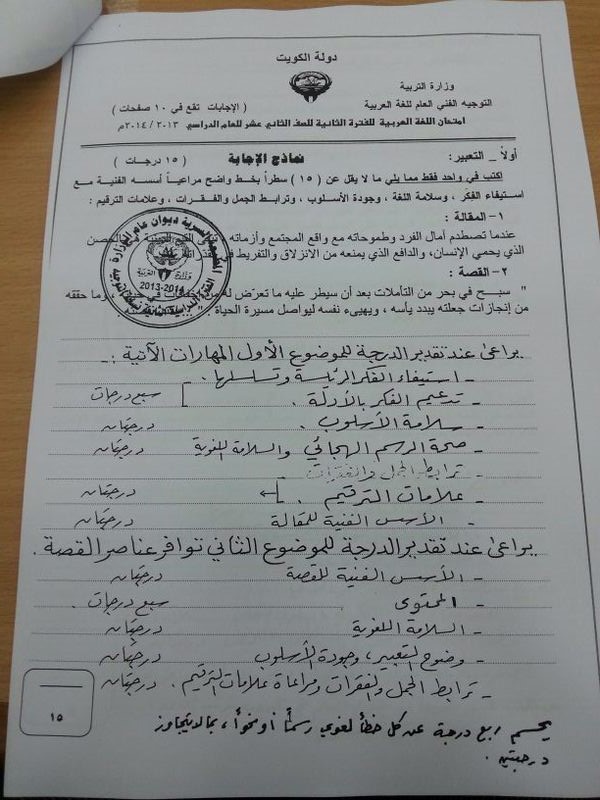 دولة الكويت
وزارة التربية
التوجيه الفني العام للغة العربية
( الإجابات تقع في ١٠ صفحات )
امتحان اللغة العربية للفترة الثانية للصف الثاني عشر للعام الدراسي ٢٠١٣ / ٢٠١٤م
أولاً _ التعبير: نماذج الإجابة ( ١٥ درجات )
اكتب في واحد فقط مما يلي ما لا يقل عن ( ١٥ ) سطراً بخط واضح مراعياً أسسه الفنية مع
استيفاء الفِكَر ، وسلامة اللغة ، وجودة الأسلوب ، وترابط الجمل والفـقـرات ، وعلامات الترقيم :
١- المقالة :
عندما تصطدم آمال الفرد وطموحاته مع واقع المجتمع وأزماته
الذي يحمي الإنسان، والدافع الذي يمنعه من الانزلاق والتفريط في
٢- القصة :
" سبـح في بحر من التأملات بعد أن سيطر عليه ما تعرّض له من وما حققه
من إنجازات جعلته يبدد يأسه ، ويهيىء نفسه ليواصل مسيرة الحياة . "
وزارة التربية
2013-2014
يراعى عند تقدير الدرجة للموضوع الأول المهارات الآتية :-
- استيفاء الفكر الرئيسة وتسلسلها .
- تدعيم الفكر بالأدلة . سبع درجات
- سلامة الأسلوب . درجتان
- صحة الرسم الهجائي والسلامة اللغوية درجتان
- ترابط الجمل والفقرات
- علامات الترقيم . درجتان
- الأسس الفنية للمقالة درجتان
يراعى عند تقدير الدرجة للموضوع الثاني توافر عناصر القصة .
- الأسس الفنية للقصة درجتان
- المحتوى سبع درجات .
- السلامة اللغوية درجتان
- وضوح التعبير ، وجودة الأسلوب درجتان
- ترابط الجمل والفقرات ومراعاة علامات الترقيم . درجتان
١٥
يحسم ربع درجة عن كل خطأ لغوي رسماً أو نحواً ، بما لا يتجاوز
درجتين .